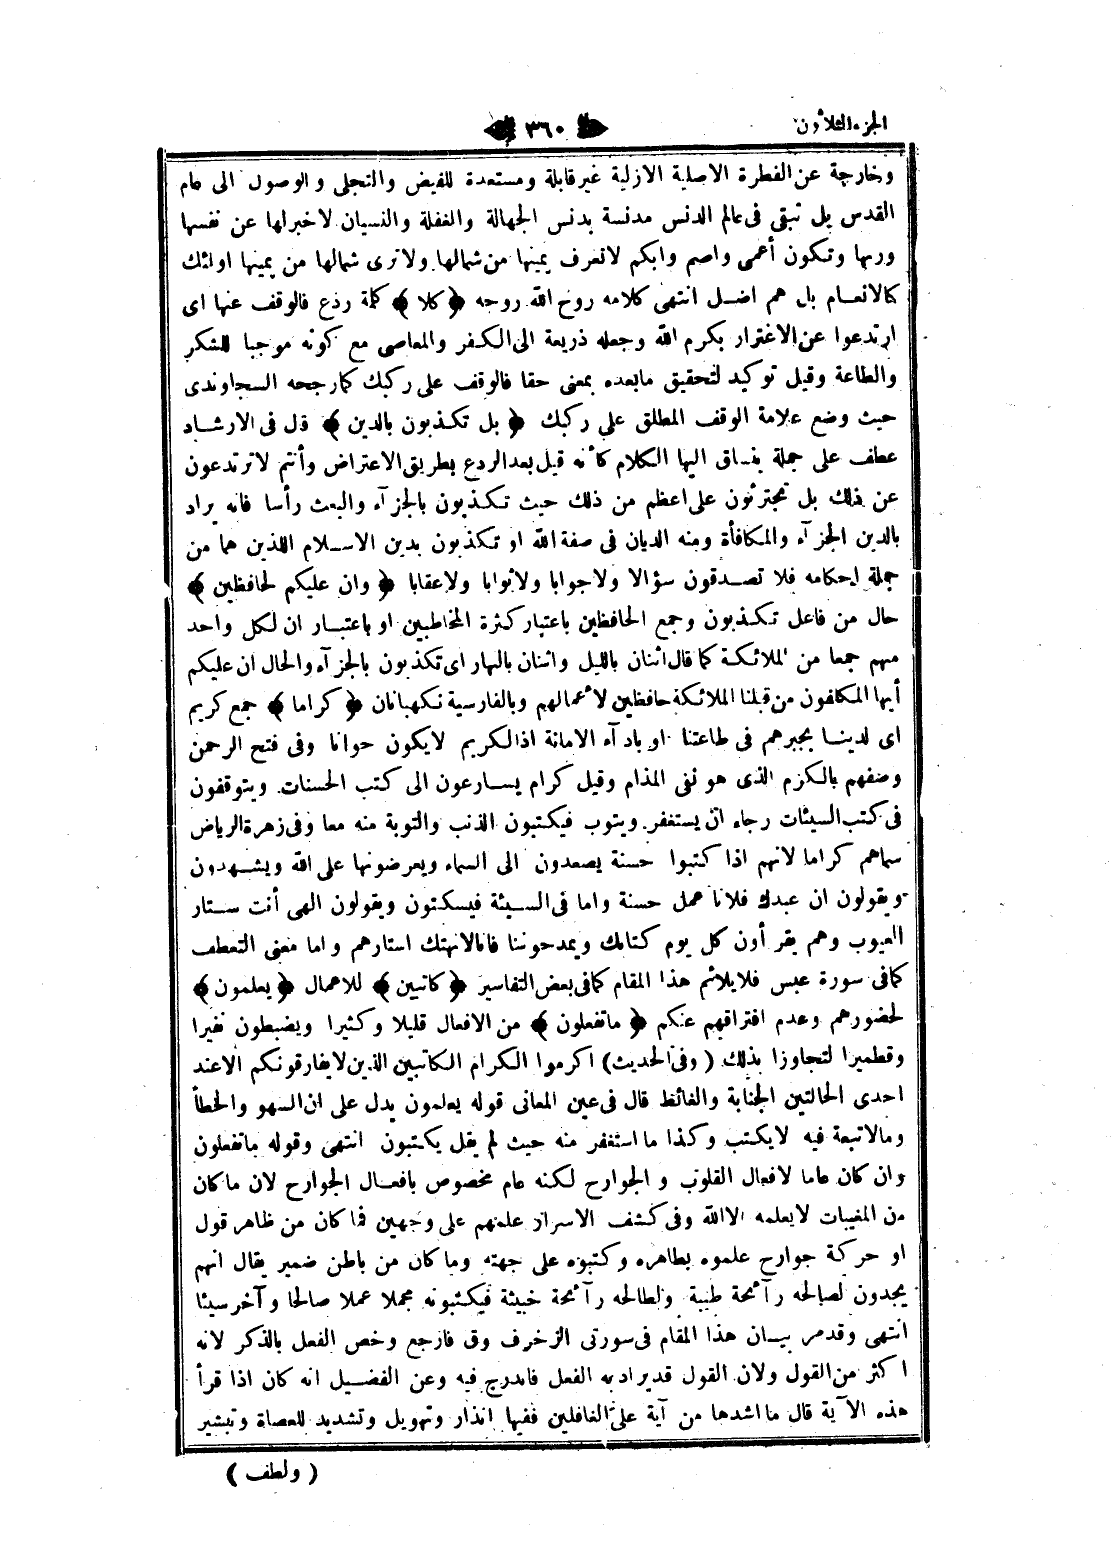 الجزء الثلاثون
٣٦٠
وخارجة عن الفطرة الاصلية الازلية غير قابلة ومستعدة للفيض والتجلى والوصول الى عالم
القدس بل تبقى فى عالم الدنس مدنسة بدنس الجهالة والغفلة والنسيان لاخبرلها عن نفسها
وربها وتكون أعمى واصم وابكم لاتعرف يمينها من شمالها ولاترى شمالها من يمينها اولئك
كالانعام بل هم اضل انتهى كلامه روح الله روحه ﴿ كلا ﴾ كلمة ردع فالوقف عنها اى
ارتدعوا عن الاغترار بكرم الله وجعله ذريعة الى الكفر والمعاصى مع كونه موجبا للشكر
والطاعة وقيل توكيد لتحقيق مابعده بمعنى حقا فالوقف على ركبك كمارجحه السجاوندى
حيث وضع علامة الوقف المطلق على ركبك ﴿ بل تكذبون بالدين ﴾ قال فى الارشاد
عطف على جملة ينساق اليها الكلام كأنه قيل بعد الردع بطريق الاعتراض وأنتم لاترتدعون
عن ذلك بل تجترئون على اعظم من ذلك حيث تكذبون بالجزآء والبعث رأسا فانه يراد
بالدين الجزآء والمكافأة ومنه الديان فى صفة الله او تكذبون بدين الاسلام اللذين هما من
جملة احكامه فلا تصدقون سؤالا ولاجوابا ولاثوابا ولاعقابا ﴿ وان عليكم لحافظين ﴾
حال من فاعل تكذبون وجمع الحافظين باعتبار كثرة المخاطبين او باعتبار ان لكل واحد
منهم جمعا من الملائكة كما قال اثنان بالليل واثنان بالنهار اى تكذبون بالجزآء والحال ان عليكم
أيها المكلفون من قبلنا الملائكة حافظين لأعمالهم وبالفارسية نكهبانان ﴿ كراما ﴾ جمع كريم
اى لدينا يجبرهم فى طاعتنا او باداء الامانة اذ الكريم لايكون خوانا وفى فتح الرحمن
وصفهم بالكرم الذى هو نفى المذام وقيل كرام يسارعون الى كتب الحسنات ويتوقفون
فى كتب السيئات رجاء ان يستغفر ويتوب فيكتبون الذنب والتوبة منه معا وفى زهرة الرياض
سماهم كراما لانهم اذا كتبوا حسنة يصعدون الى السماء ويعرضونها على الله ويشهدون
ويقولون ان عبدك فلانا عمل حسنة واما فى السيئة فيسكتون ويقولون الهى أنت ستار
العيوب وهم يقرأون كل يوم كتابك ويمدحوننا فانا لانهتك استارهم واما معنى التعطف
كمافى سورة عبس فلايلائم هذا المقام كمافى بعض التفاسير ﴿ كاتبين ﴾ للاعمال ﴿ يعلمون ﴾
لحضورهم وعدم افتراقهم عنكم ﴿ ماتفعلون ﴾ من الافعال قليلا وكثيرا ويضبطون نقيرا
وقطميرا لتجازوا بذلك ( وفى الحديث ) اكرموا الكرام الكاتبين الذين لايفارقونكم الاعند
احدى الحالتين الجنابة والغائط قال فى عين المعانى قوله يعلمون يدل على ان السهو والخطأ
ومالاتبعة فيه لايكتب وكذا ما استغفر منه حيث لم يقل يكتبون انتهى وقوله ماتفعلون
وان كان عاما لافعال القلوب والجوارح لكنه عام مخصوص بافعال الجوارح لان ماكان
من المغيبات لايعلمه الاالله وفى كشف الاسرار علمهم على وجهين فما كان من ظاهر قول
او حركة جوارح علموه بظاهره وكتبوه على جهته وماكان من باطن ضمير يقال انهم
يجدون لصالحه رآئحة طيبة ولطالحه رآئحة خبيثة فيكتبونه مجملا عملا صالحا وآخر سيئا
انتهى وقدمر بيان هذا المقام فى سورتى الزخرف وق فارجع وخص الفعل بالذكر لانه
اكثر من القول ولان القول قديراد به الفعل فاندرج فيه وعن الفضيل انه كان اذا قرأ
هذه الآية قال ما اشدها من آية على الغافلين ففيها انذار وتهويل وتشديد للعصاة وتبشير
( ولطف )